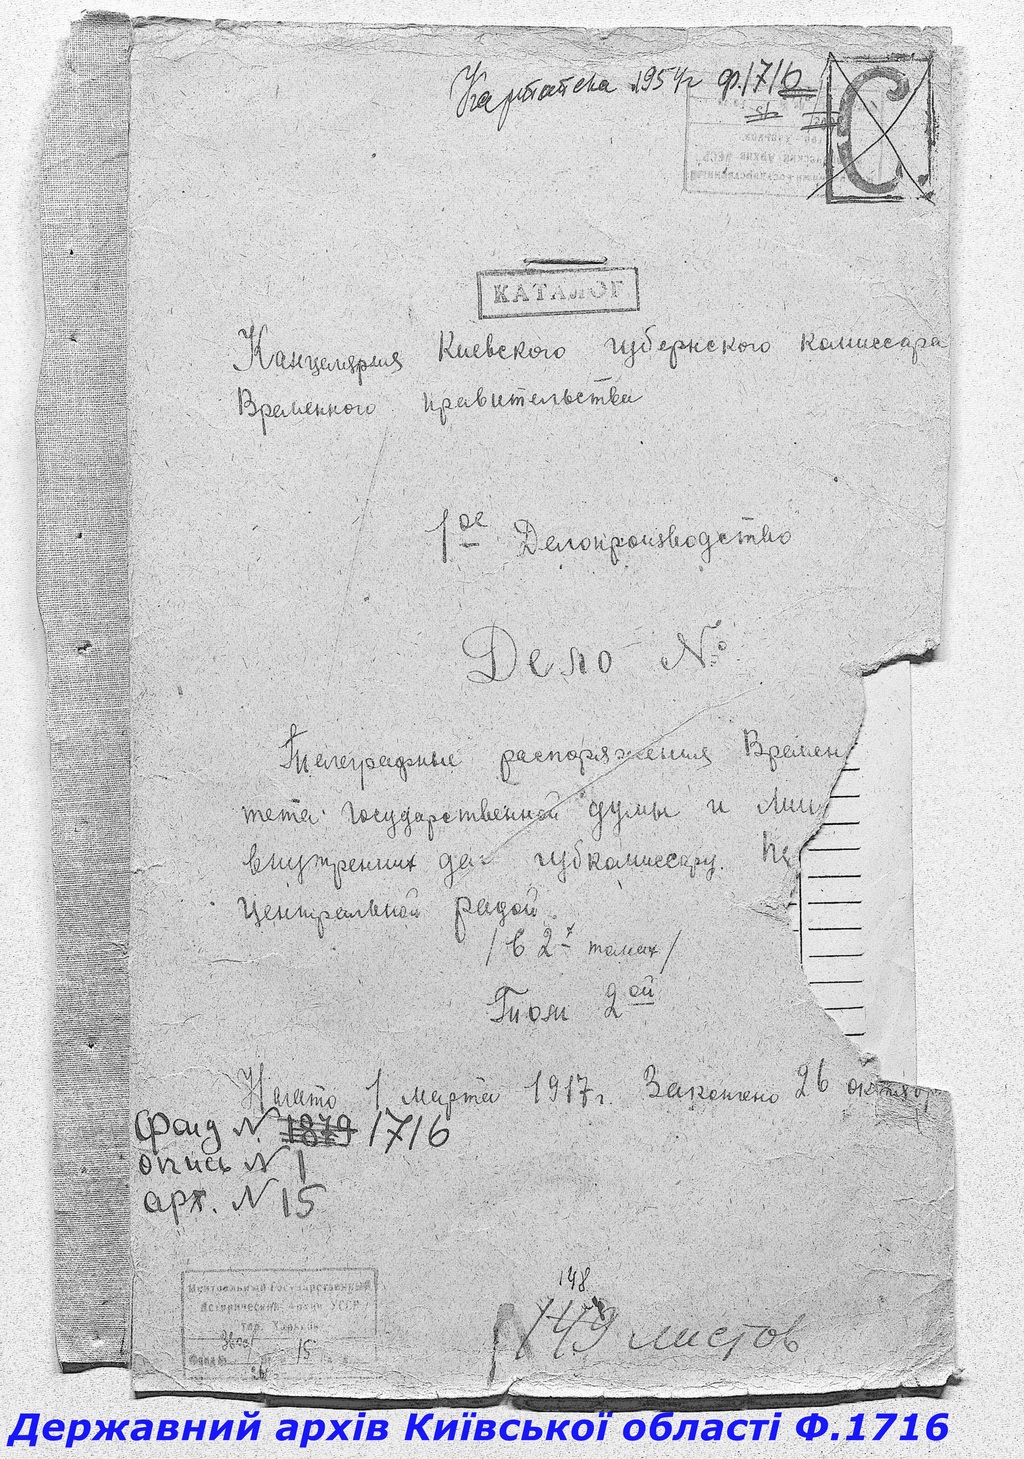 Картотека 1954г ф.1716
С
КАТАЛОГ
Канцелярия Киевского губернского комиссара
Временного правительства
1ое Делопроизводство
Дело №
Телеграфные распоряжения Времен
тета государственной думы и мин
внутренних дел губкомиссару.
Центральной радой.
/в 2х томах/
Том 2ой
Начато 1 марта 1917г. Закончено 26 октябр
Фонд № 1879 1716
опись № 1
арх. № 15
Центральный Государственный
Исторический Архив УССР
гор. Харьков
15
148
149 листов
Державний архів Київської області Ф.1716